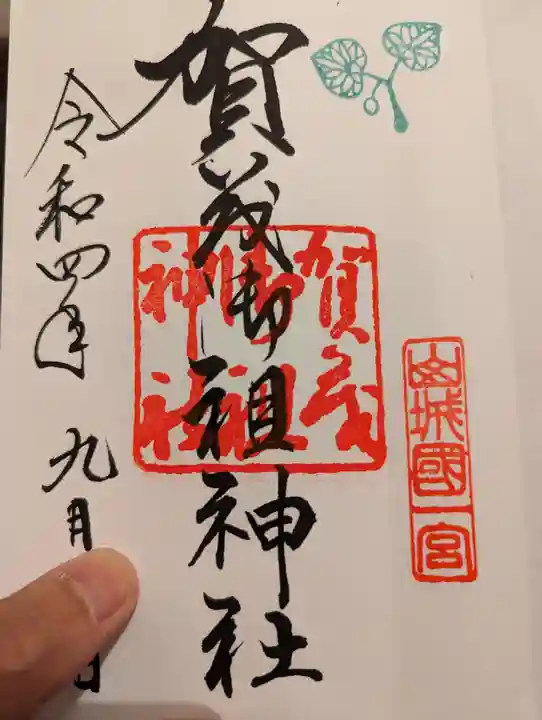 山城國一宮
賀茂御祖神社
賀茂
御祖
神社
令和四年 九月 日